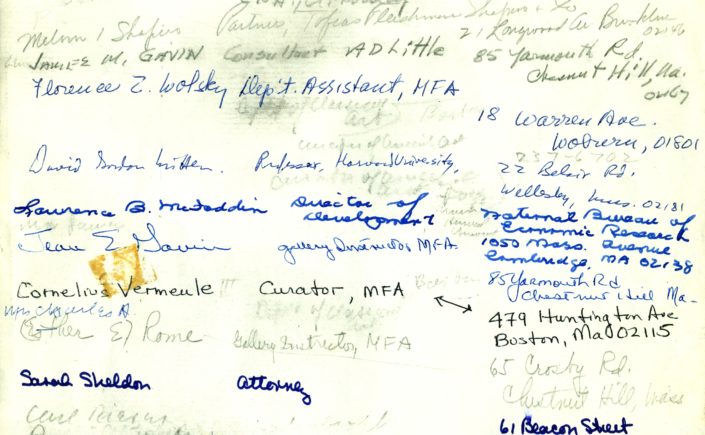 Melvin I Shapiro Partner, Tofias Fleishman Shapiro & Co 21 Longwood Av Brookline 02146
JAMES M. GAVIN Consultant AD Little 85 Yarmouth Rd, Chesnut Hill, Ma. 02167
Florence Z. Wolsky Dep't. Assistant, MFA
18 Warren Ave. Woburn, 01801
David Gordon Mitten Professor, Harvard University,
22 Belair Rd. Wellesley, Mass. 02181
Lawrence B. McFaddin Director of Development
National Bureau of Economic Research
1050 Mass. Avenue
Cambridge, MA 02138
Jean E Gavin gallery Instructor MFA
85 Yarmouth Rd
Chestnut Hill Ma-
Cornelius Vermeule III Curator, MFA
479 Huntington Ave
Boston, Ma 02115
Mrs Charles A
(Esther E) Rome Gallery Instructor, MFA
65 Crosby Rd.
Chestnut Hill, Mass
Sarah Sheldon attorney
61 Beacon Street